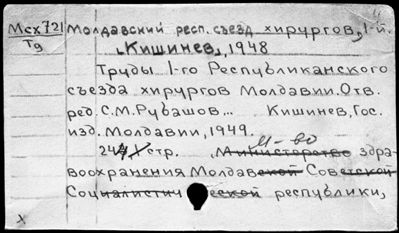 Мсх721 Молдавский респ. съезд хирургов, 1-й.
Тд „Кишинев, 1948
Труды 1-го Республиканского
съезда хирургов Молдавии. Отв.
ред. С.М. Рубашов... Кишинев, Гос.
изд. Молдавии, 1949.
М-во
стр. Министерство здра-
воохранения Молдавской Советской
Социалистической республики,
x